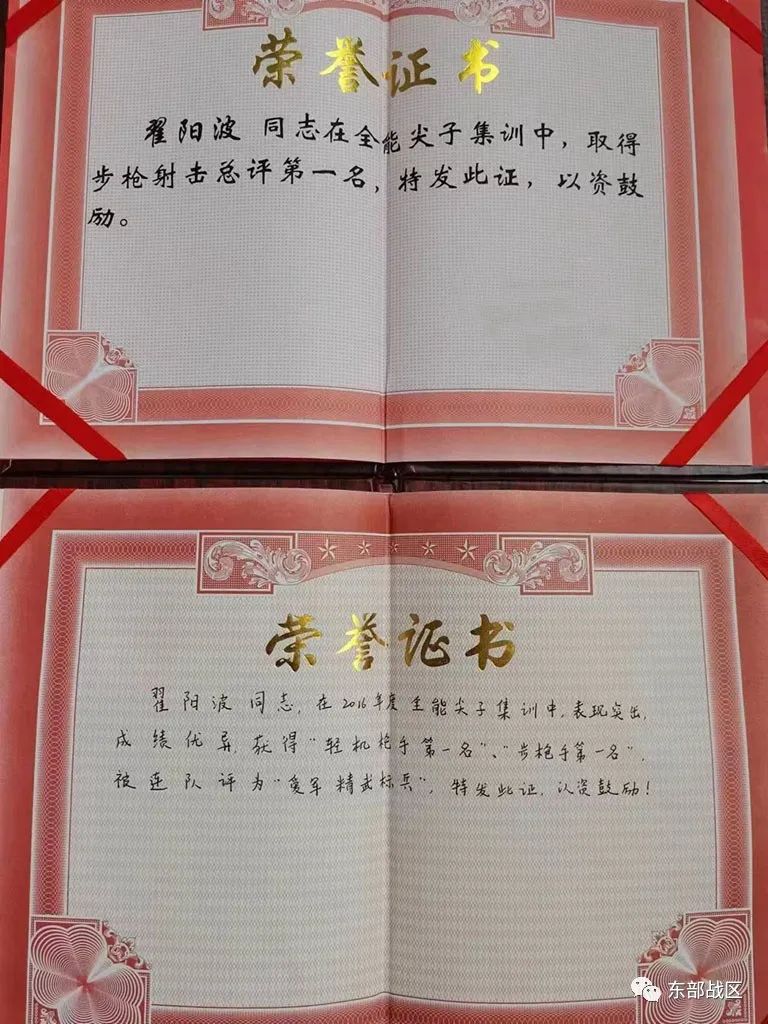 荣誉证书
翟阳波 同志在全能尖子集训中，取得
步枪射击总评第一名，特发此证，以资鼓
励。
荣誉证书
翟阳波同志，在2016年度全能尖子集训中，表现突出，
成绩优异，获得“轻机枪手第一名”、“步枪手第一名”，
被连队评为“爱军精武标兵”，特发此证，以资鼓励！
东部战区